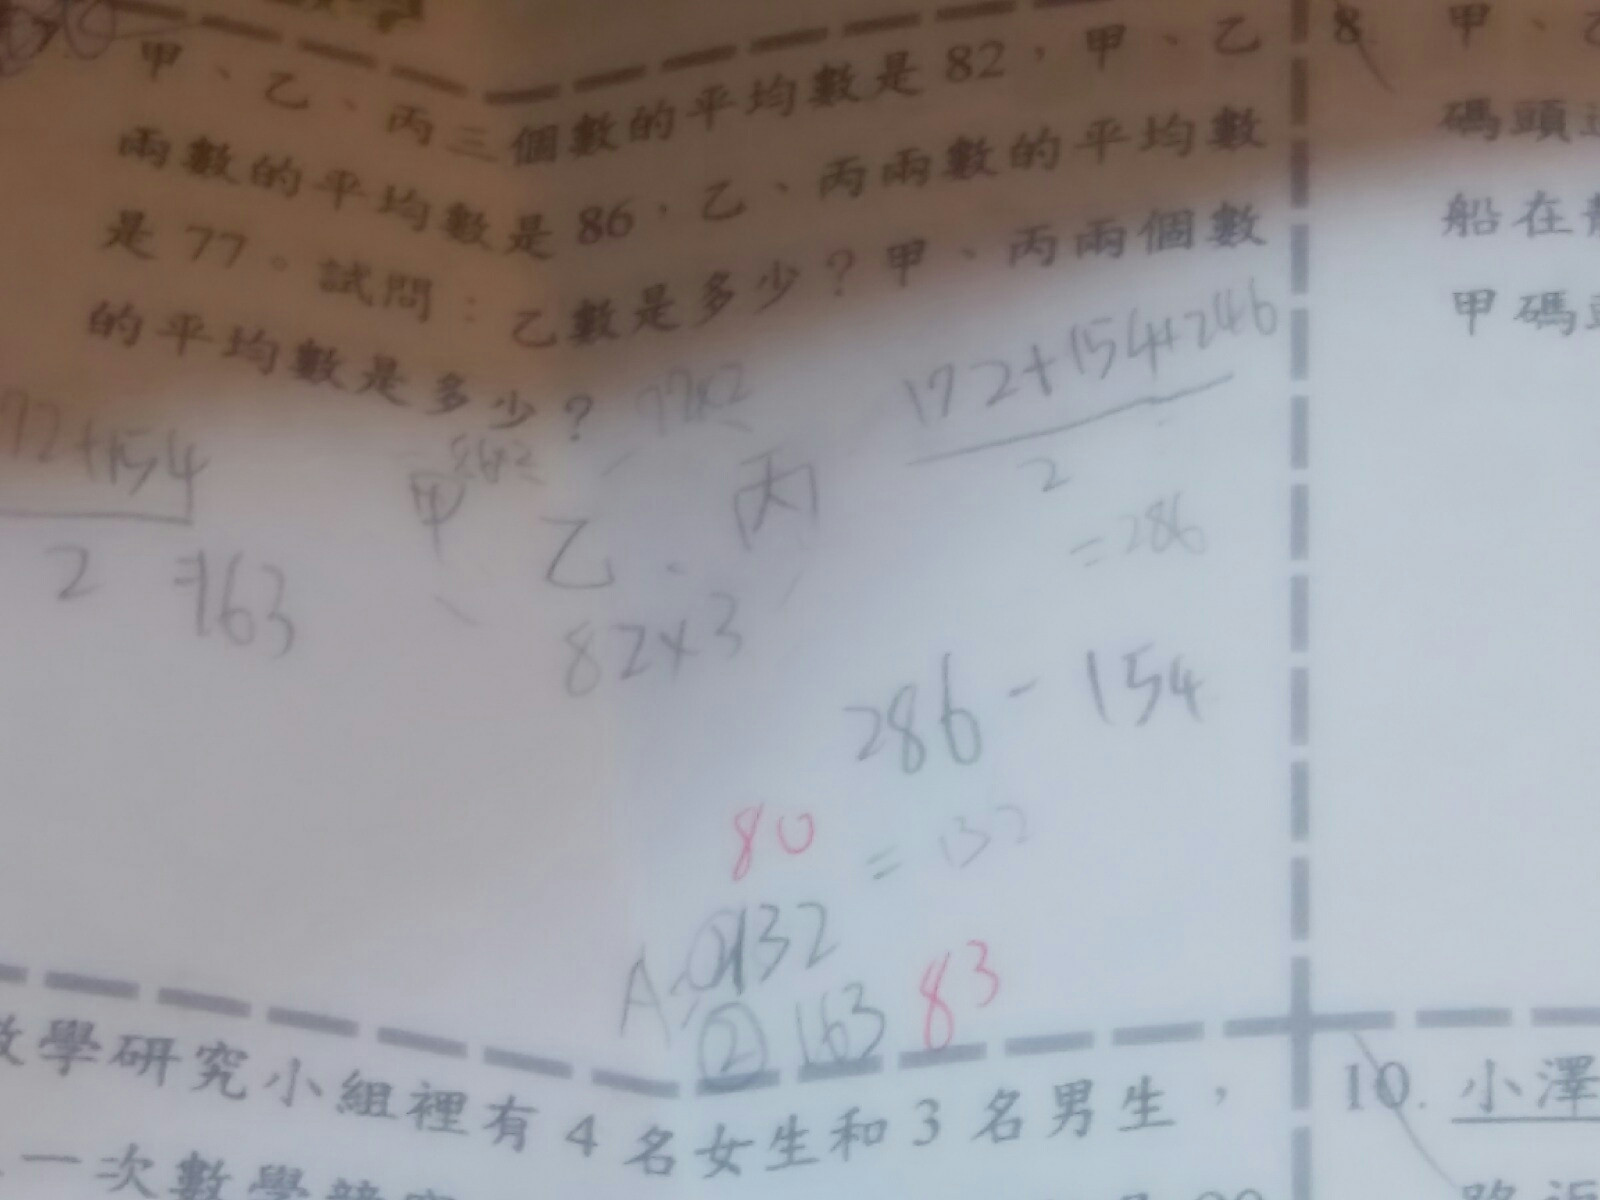 甲、乙、丙三個數的平均數是82，甲、乙
兩數的平均數是86，乙、丙兩數的平均數
是77。試問：乙數是多少？甲、丙兩個數
的平均數是多少？
8.
甲、乙
碼頭
船在
甲碼頭
72+154
2
=163
甲
86×2
77×2
乙、丙
82×3
172+154+246
2
=286
286-154
=132
80
A:①132
②163
83
數學研究小組裡有4名女生和3名男生，
一次數學競賽
10. 小澤